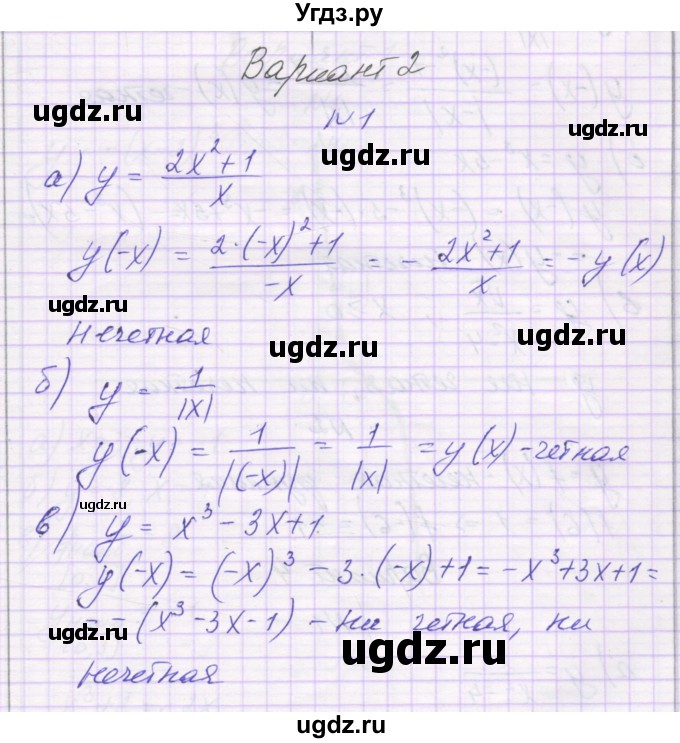 Угдз.ру
Вариант 2
ugdz.ru
ugdz.ru
N1
ugdz.ru
а) y = (2x² + 1)/x
y(-x) = (2·(-x)² + 1)/(-x) = - (2x² + 1)/x = - y(x)
ugdz.ru
Нечетная
ugdz.ru
ugdz.ru
б) y = 1/|x|
y(-x) = 1/|(-x)| = 1/|x| = y(x) - четная
ugdz.ru
ugdz.ru
в) y = x³ - 3x + 1
y(-x) = (-x)³ - 3·(-x) + 1 = -x³ + 3x + 1 =
= -(x³ - 3x - 1) - ни четная, ни
ugdz.ru
ugdz.ru
нечетная
ugdz.ru